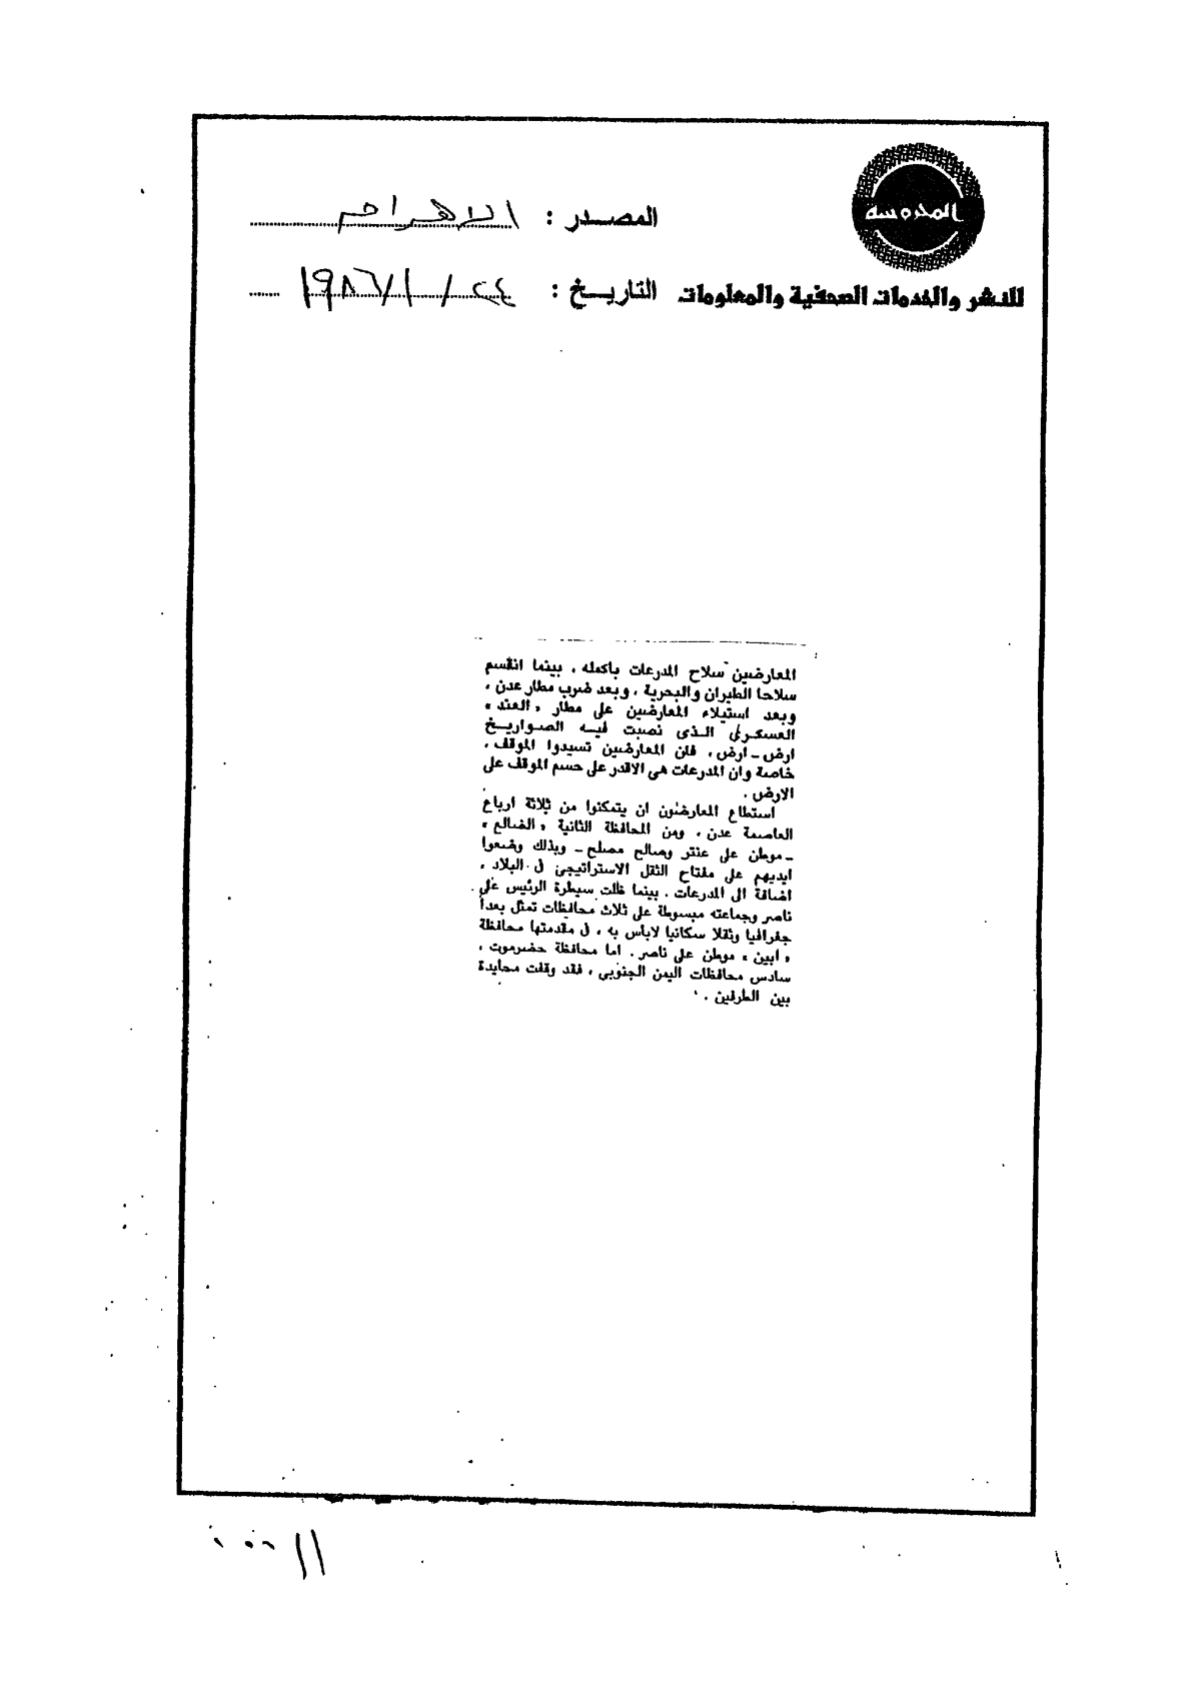 المحروسة
للنشر والخدمات الصحفية والمعلومات
المصدر : الاهرام
التاريخ : ٢٤ / ١ / ١٩٨٦
المعارضين سلاح المدرعات باكمله ، بينما انقسم
سلاحا الطيران والبحرية ، وبعد ضرب مطار عدن ،
وبعد استيلاء المعارضين على مطار « العند »
العسكرى الذى نصبت فيه الصواريخ
ارض ـ ارض ، فان المعارضين تسيدوا الموقف ،
خاصة وان المدرعات هى الاقدر على حسم الموقف على
الارض .
استطاع المعارضون ان يتمكنوا من ثلاثة ارباع
العاصمة عدن ، ومن المحافظة الثانية « الضالع »
ـ موطن على عنتر وصالح مصلح ـ وبذلك وضعوا
ايديهم على مفتاح الثقل الاستراتيجى فى البلاد ،
اضافة الى المدرعات . بينما ظلت سيطرة الرئيس على
ناصر وجماعته مبسوطة على ثلاث محافظات تمثل بعداً
جغرافيا وثقلا سكانيا لاباس به ، فى مقدمتها محافظة
« ابين » موطن على ناصر . اما محافظة حضرموت ،
سادس محافظات اليمن الجنوبى ، فقد وقفت محايدة
بين الطرفين .